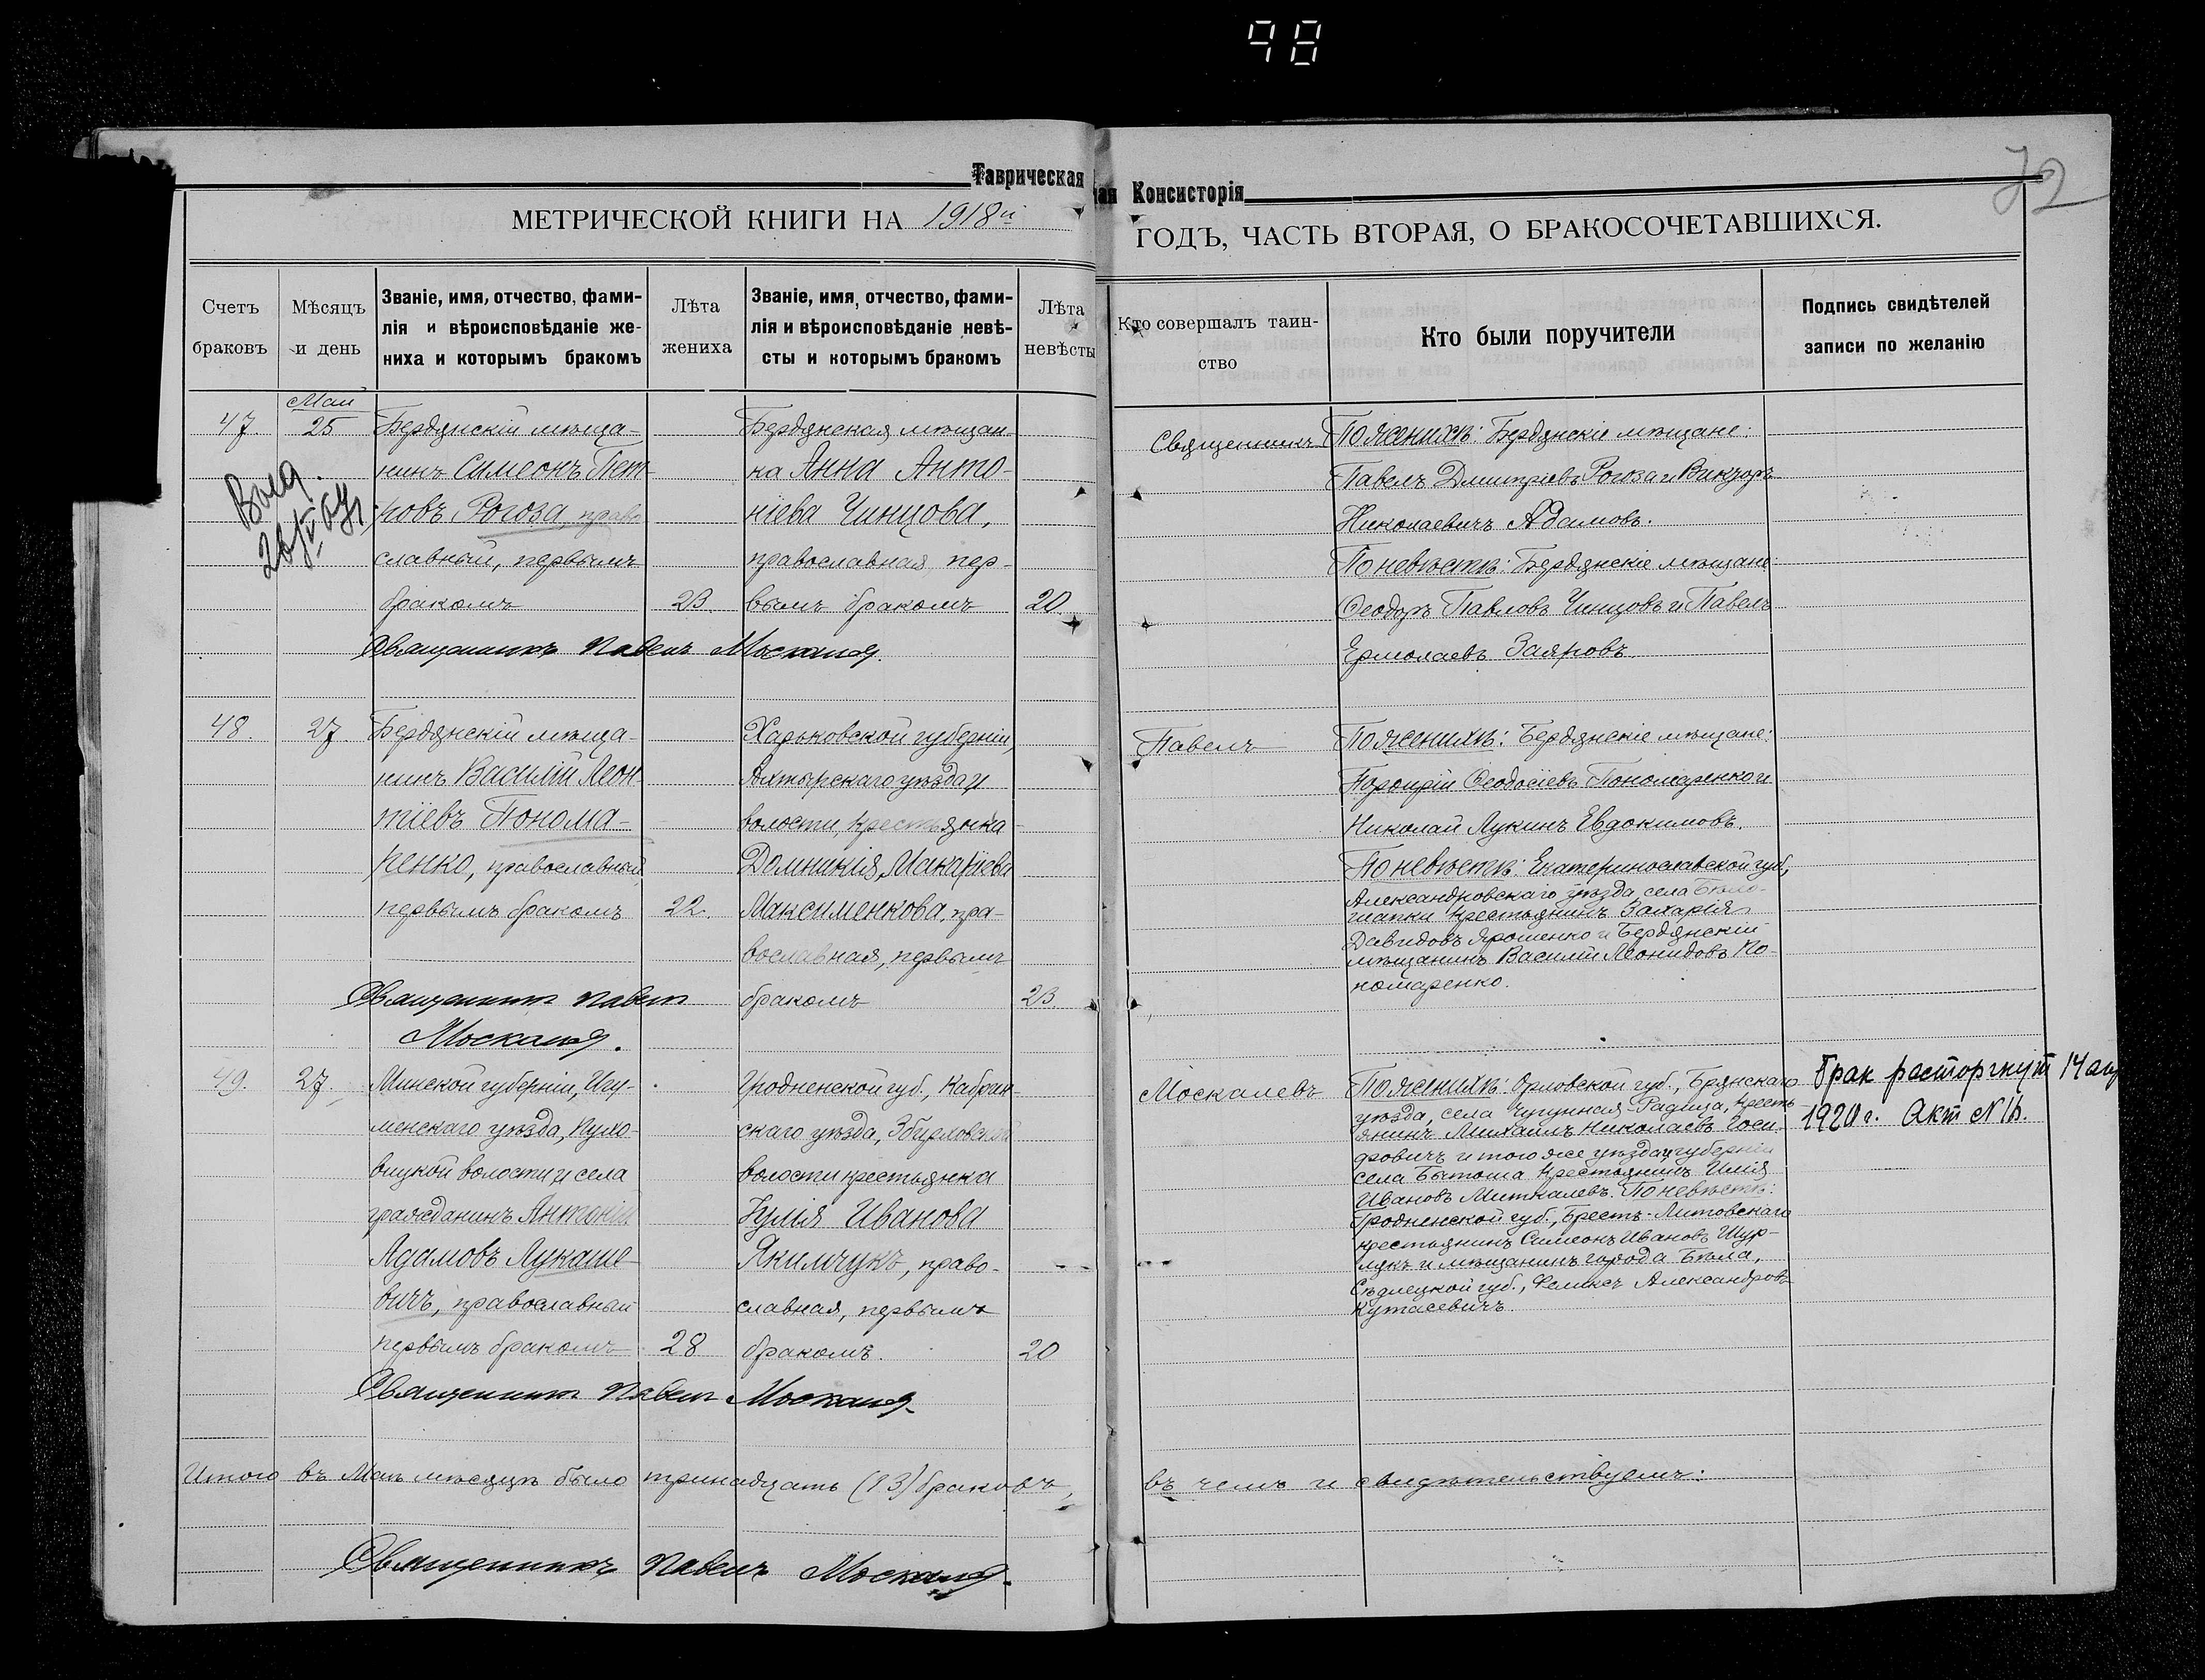 98
Таврическая
ная Консисторія
72
МЕТРИЧЕСКОЙ КНИГИ НА 1918й
ГОДЪ, ЧАСТЬ ВТОРАЯ, О БРАКОСОЧЕТАВШИХСЯ.
Счетъ браковъ
Мѣсяцъ и день
Званіе, имя, отчество, фами-
лія и вѣроисповѣданіе же-
ниха и которымъ бракомъ
Лѣта жениха
Званіе, имя, отчество, фами-
лія и вѣроисповѣданіе невѣ-
сты и которымъ бракомъ
Лѣта невѣсты
Кто совершалъ таин-
ство
Кто были поручители
Подпись свидѣтелей
записи по желанію
47.
Май
25
Бердянскій мѣща-
нинъ Симеонъ Пет
ровъ Рогоза, право
славный, первымъ
бракомъ
23.
Бердянская мѣщан-
ка Анна Анто-
ніева Чинцова,
православная пер-
вымъ бракомъ
20.
Священникъ Павелъ
Священникъ
По женихѣ: Бердянскіе мѣщане:
Павелъ Дмитріевъ Рогоза и Викторъ
Николаевичъ Адамовъ.
По невѣстѣ: Бердянскіе мѣщане:
Ѳеодоръ Павловъ Чинцовъ и Павелъ
Ермолаевъ Заяровъ.
48.
27.
Бердянскій мѣща-
нинъ Василій Леон
тіевъ Понома-
ренко, православный,
первымъ бракомъ
22.
Харьковской губерніи,
Ахтырскаго уѣзда и
волости, крестьянка
Домникія Макаріева
Максименкова, пра-
вославная, первымъ
бракомъ
23.
Священникъ Павелъ
Павелъ
По женихѣ: Бердянскіе мѣщане:
Порфирій Ѳеодосіевъ Пономаренко и
Николай Лукинъ Евдокимовъ.
По невѣстѣ: Екатеринославской губ,
Александровскаго уѣзда, села Бѣло-
глапки крестьянинъ Захарія
Давидовъ Ярошенко и Бердянскій
мѣщанинъ Василій Леонидовъ По-
номаренко.
49.
27.
Минской губерніи, Игу-
менскаго уѣзда, Пухо-
вицкой волости и села
гражданинъ Антоній
Адамовъ Лукаше-
вичъ, православный
первымъ бракомъ
28
Гродненской губ., Кабрин-
скаго уѣзда, Збировской
волости крестьянка
Іулія Иванова
Якимчукъ, право-
славная, первымъ
бракомъ.
20
Священникъ Павелъ
Москалевъ
По женихѣ: Орловской губ., Брянскаго
уѣзда, села Чугунная-Радица, кресть
янинъ Михаилъ Николаевъ
и того же уѣзда и губерніи
села Бытоша крестьянинъ Илія
Ивановъ Миткалевъ. По невѣстѣ:
Гродненской губ., Брестъ-Литовскаго
крестьянинъ Симеонъ Ивановъ Шур-
лукъ и мѣщанинъ города Бѣла,
Сѣдлецкой губ., Феликсъ Александровъ
Кутасевичъ.
Брак расторгнут 14 авг
1920 г. Акт №
Итого въ Маѣ мѣсяцѣ было тринадцать (13) браковъ,
въ чемъ и свидѣтельствуемъ:
Священникъ Павелъ